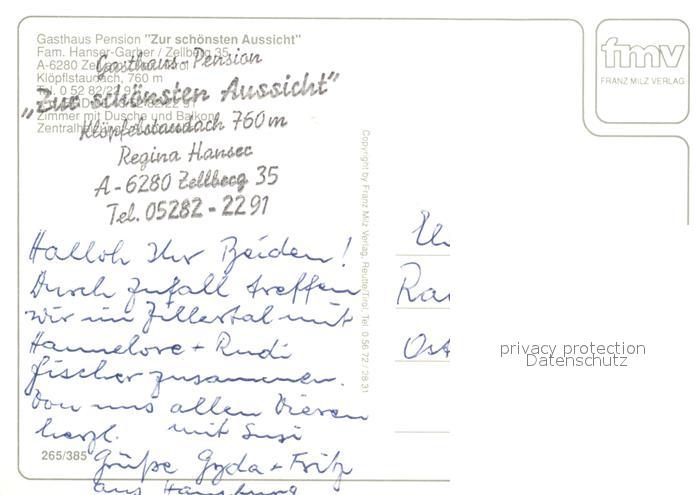 Gasthaus Pension "Zur schönsten Aussicht"
Fam. Hanser-Garber / Zellberg 35
A-6280
Klöpflstaudach, 760 m
Tel. 0 52 82/22
Zimmer mit Dusche und Balkon
Gasthaus-Pension
„Zur schönsten Aussicht"
Klöpfelstaudach 760m
Regina Hanser
A-6280 Zellberg 35
Tel. 05282-2291
Halloh Ihr Beiden!
Durch Zufall treffen
wir im Zillertal mit
Hannelore + Rudi
Fischer zusammen.
Von uns allen Vieren
herzl. mit Susi
Grüße Gyda + Fritz
aus Hamburg
265/385
Copyright by Franz Milz Verlag, Reutte/Tirol, Tel. 0 56 72 / 28 31
fmv
FRANZ MILZ VERLAG
privacy protection
Datenschutz